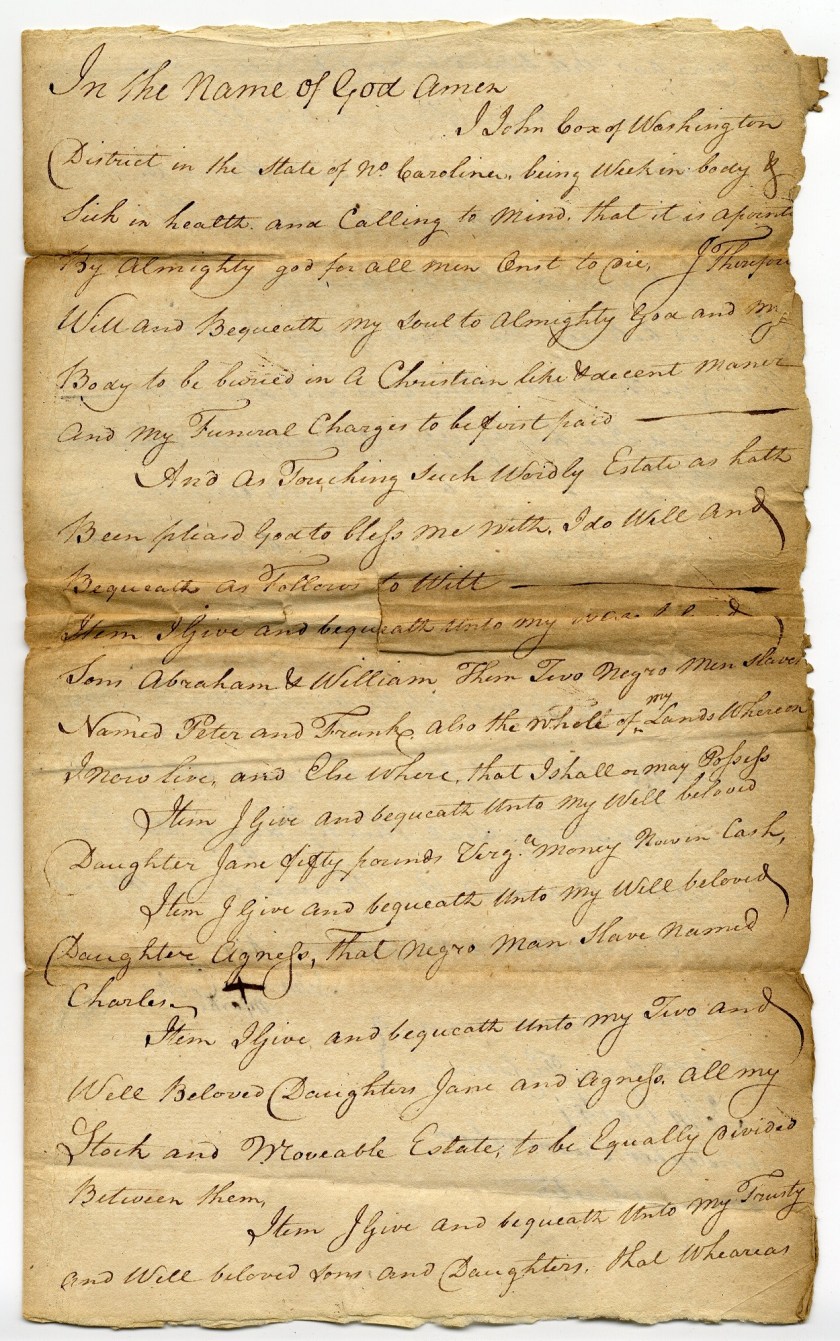 In the Name of God Amen
I John Cox of Washington
District in the State of No. Carolina, being Week in body &
Sick in health. and Calling to Mind. that it is apoint
By Almighty god for all men Onst to Die, I Therefore
Will and Bequeath my Soul to Almighty God and my
Body to be buried in A Christian like & decent Maner
And My Funeral Charges to be first paid
And As Touching Such Wordly Estate as hath
Been pleasd God to bless me with. I do Will And
Bequeath As Follows to Witt
Item I Give and bequeath Unto my
Sons Abraham & William Them Two Negro Men Slaves
Named Peter and Frank, also the whole of my Lands Whereon
I now live, and Else Where, that I shall or may Possess
Item I Give and bequeath Unto my Well beloved
Daughter Jane fifty pounds Virga. Money Now in Cash,
Item I Give and bequeath Unto my Well beloved
Daughter Agness, That Negro Man Slave Named
Charles
Item I Give and bequeath Unto my Two and
Well Beloved Daughters Jane and Agness. All my
Stock and Moveable Estate, to be Equally Divided
Between them,
Item I Give and bequeath Unto my Trusty
and Well beloved Sons and Daughters. that Wheareas